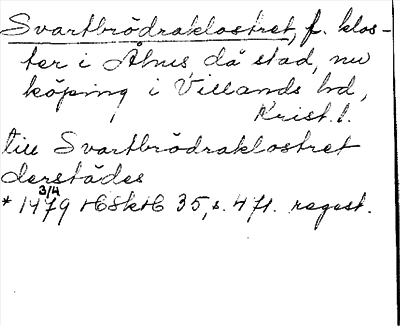 Svartbrödraklostret, f. klos-
ter i Åhus då stad, nu
köping i Villands hd,
Krist. l.
till Svartbrödraklostret
derstädes
3/4
* 1479 HSkH 35, s. 47 f. regest.